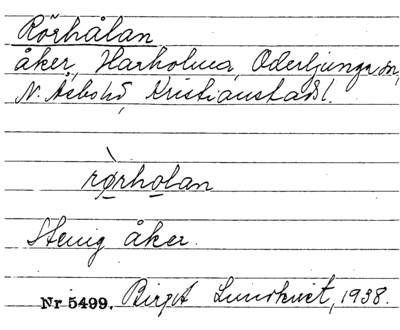 Rörhålan
åker, Harholma, Oderljunga sn,
N. Åsbo hd, Kristianstads l.
rø̀rhol̲an
Stenig åker.
Nr 5499. Birgit Lundkvist, 1938.